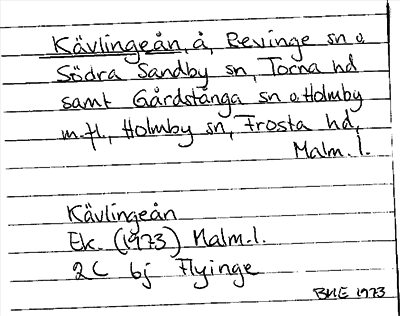 Kävlingeån, å, Revinge sn o.
Södra Sandby sn, Torna hd
samt Gårdstånga sn o. Holmby
m.fl., Holmby sn, Frosta hd,
Malm. l.
Kävlingeån
Ek. (1973) Malm. l.
2C 6j Flyinge
BME 1973